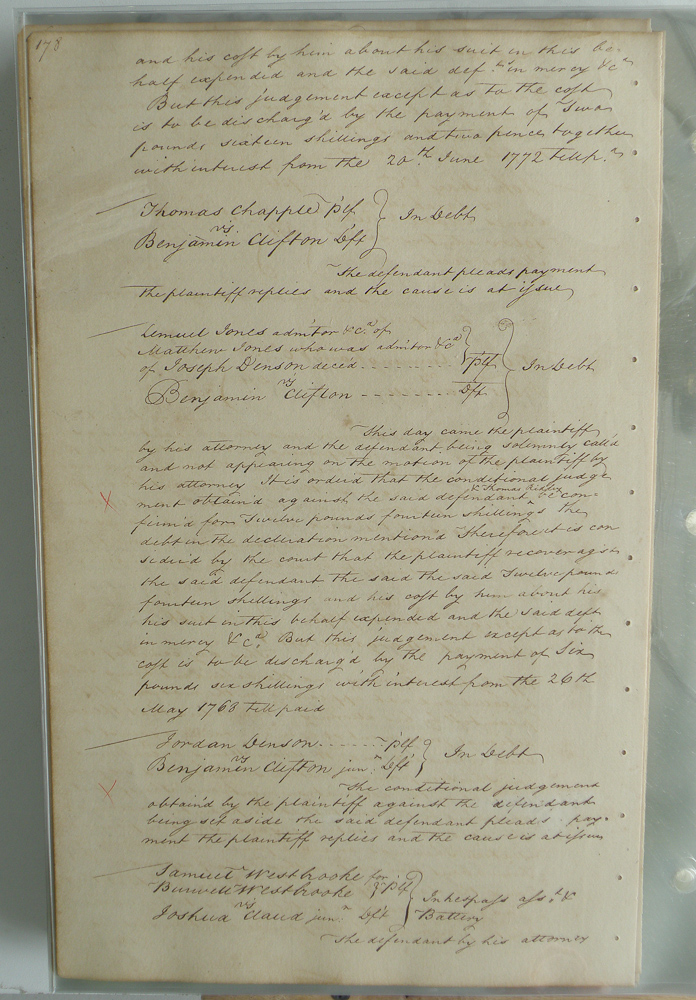 178
and his cost by him about his suit in this be-
half expended and the said def.ts in mercy &c.a
But this judgement except as to the cost
is to be discharg'd by the payment of Two
pounds sixteen shillings and two pence together
with interest from the 20th June 1772 till p.d
Thomas Chapple plf
vs
In Debt
Benjamin Clifton Dft
The defendant pleads payment
the plaintiff replies and the cause is at issue
Lemuel Jones admitor &c.a of
Matthew Jones who was admitor &c.a
of Joseph Denson deced - - - - - - - - - plf
In Debt
vs
Benjamin Clifton - - - - - - - - Dft
This day came the plaintiff
by his attorney and the defendant being solemnly call'd
and not appearing on the motion of the plaintiff by
his attorney It is orderd that the conditional judge
& Thomas Ridley
ment obtain'd against the said defendant ^ be con-
firm'd for Twelve pounds fourteen shillings the
debt in the declaration mention'd Therefore it is con
sider'd by the court that the plaintiff recover agst
the said defendant the said the said Twelve pound
fourteen shillings and his cost by him about his
his suit in this behalf expended and the said deft
in mercy &c.a But this judgement except as to the
cost is to be discharg'd by the payment of Six
pounds six shillings with interest from the 26th
May 1768 till paid
Jordan Denson - - - - - - plf
vs
In Debt
Benjamin Clifton jun.r Dft
The conditional judgement
obtain'd by the plaintiff against the defendant
being set aside the said defendant pleads pay-
ment the plaintiff replies and the cause is at issue
Samuel Westbrooke for
Burwell Westbrooke plf
In trespass ass.t &
vs
Joshua Claud jun.r Dft
Battery
The defendant by his attorney